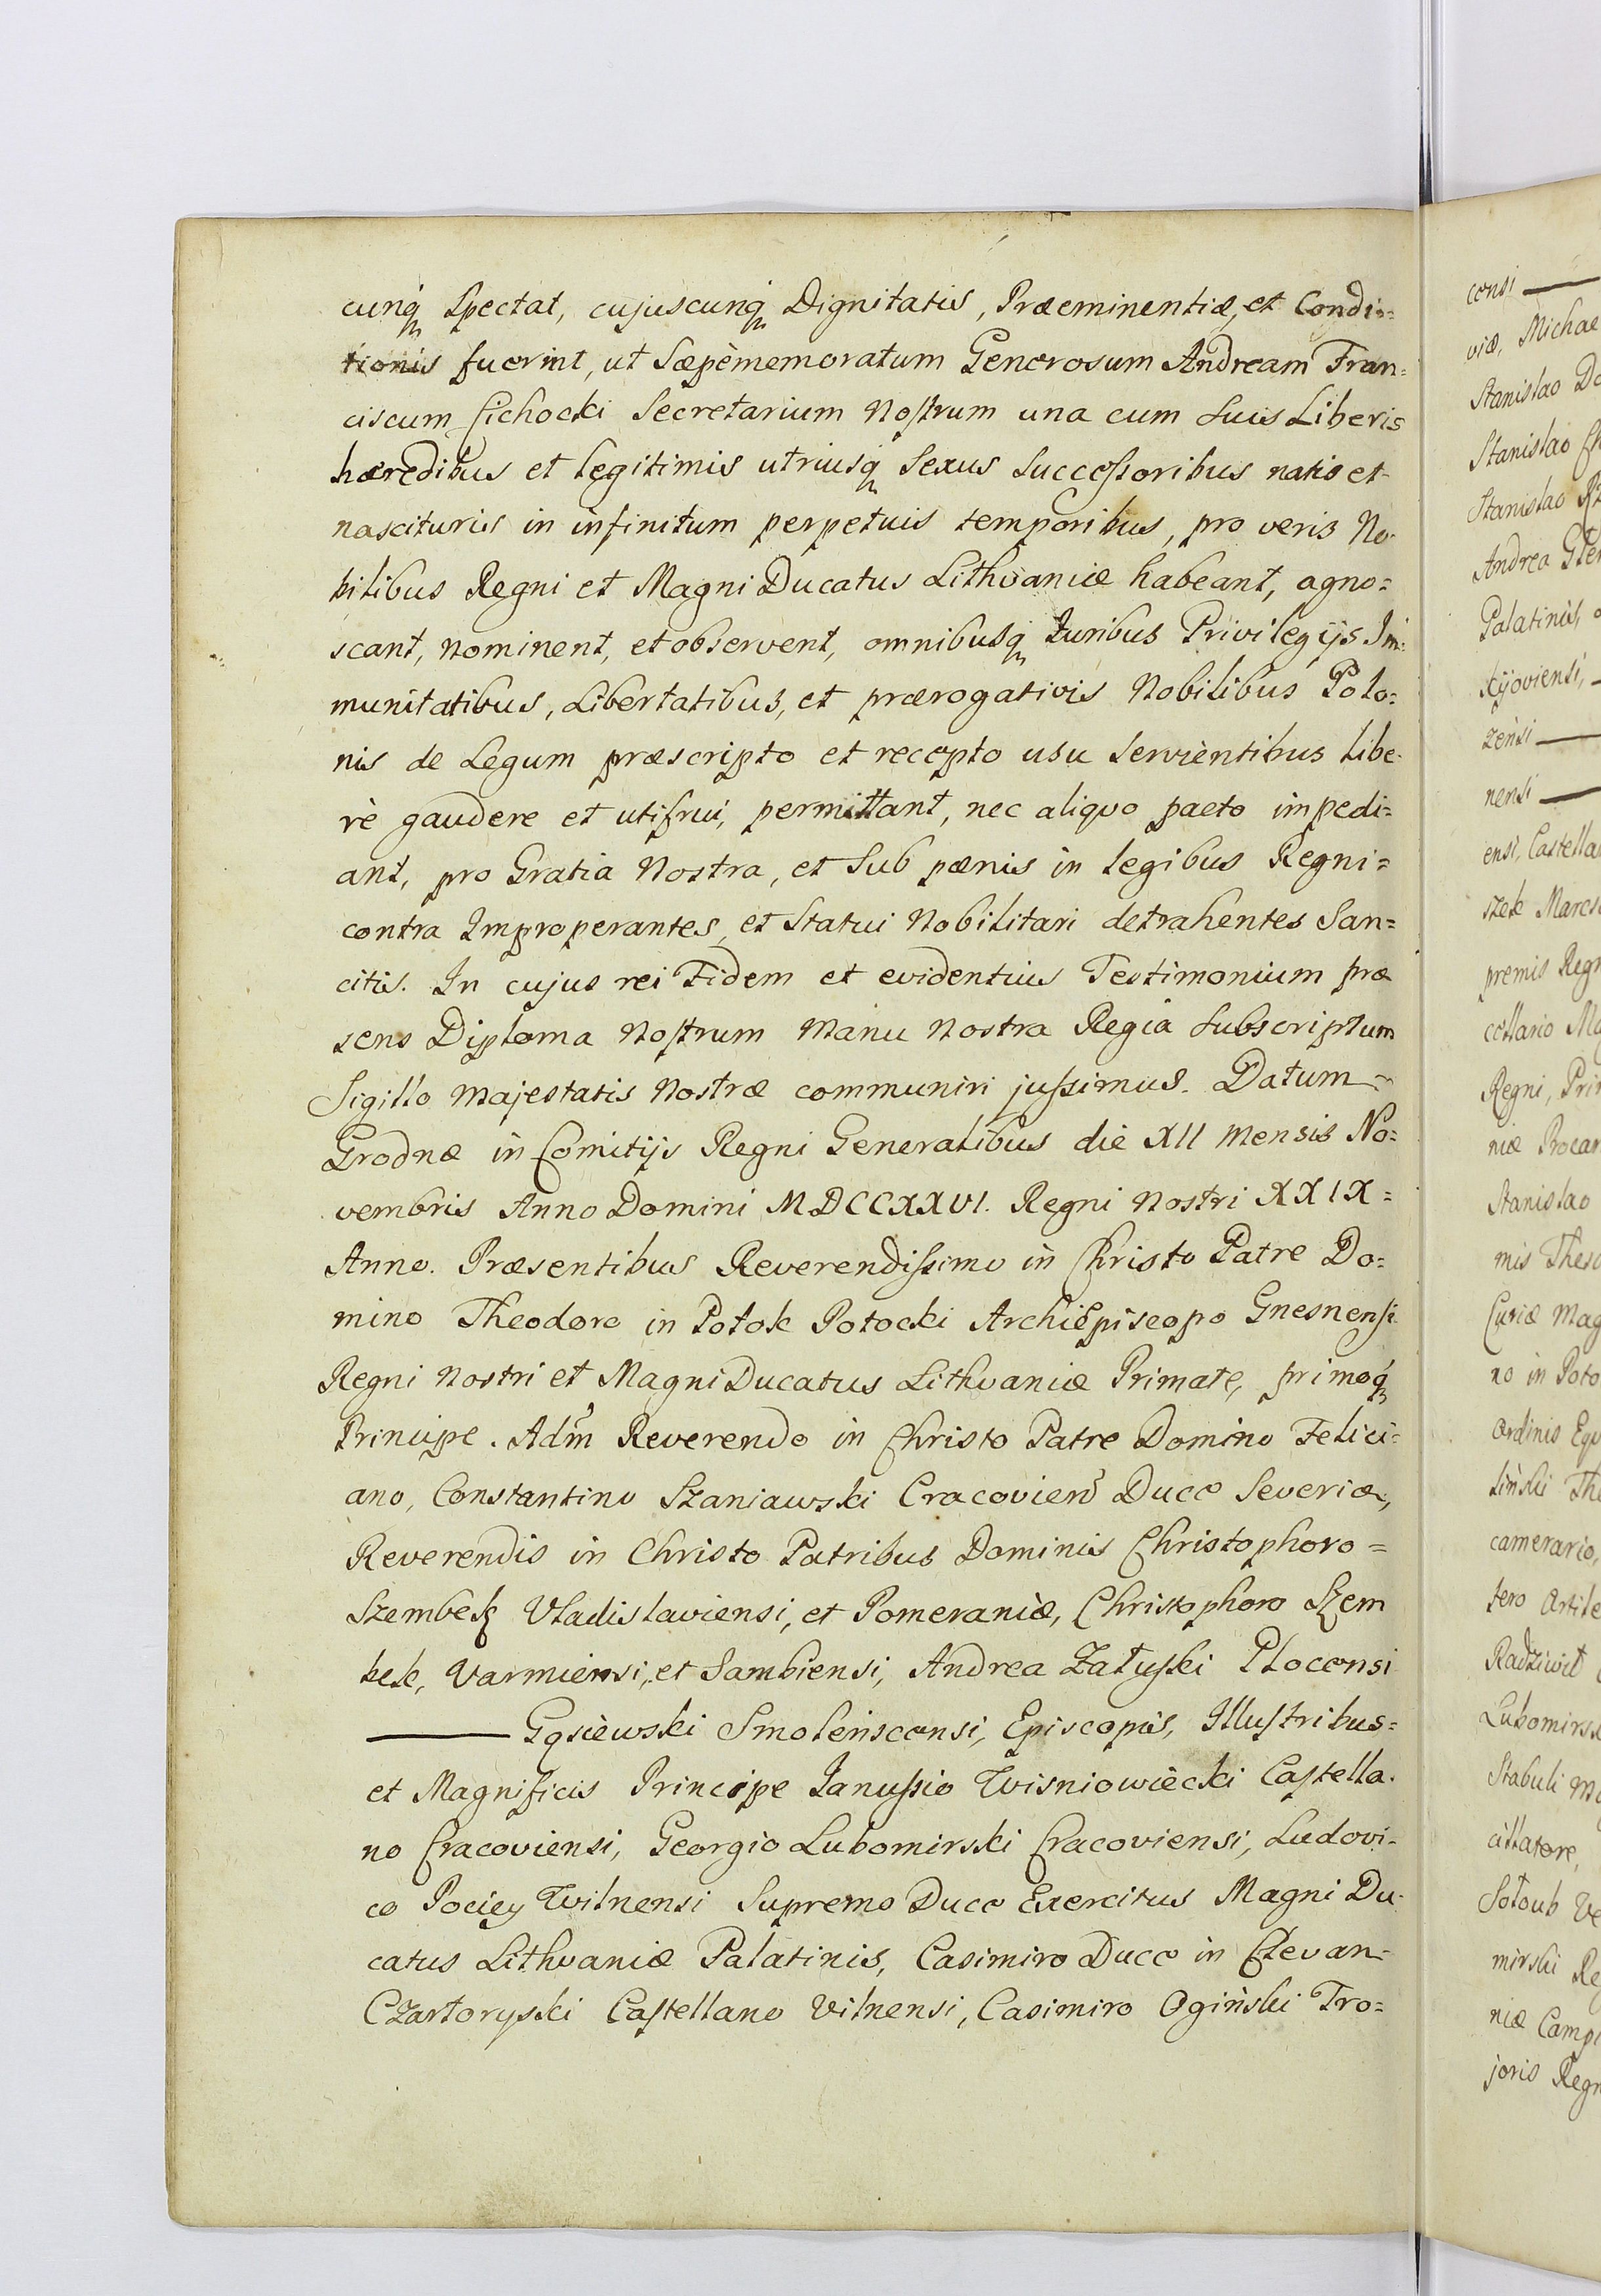 cunq́ Spectat, cujuscunq́ Dignitatis, Præeminentiæ, et Condi=
tionis fuerint, ut Sæpèmemoratum Generosum Andream Fran=
ciscum Cichocki Secretarium Nostrum una cum Suis Liberis
hæredibus et legitimis utriusq́ Sexus Successoribus natis et
nascituris in infinitum perpetuis temporibus, pro veris No-
bilibus Regni et Magni Ducatus Lithvaniæ habeant, agno=
scant, nominent, et observent, omnibusq́ Iuribus Privilegijs Im=
munitatibus, Libertatibus, et prærogativis Nobilibus Polo=
nis de Legum præscripto et recepto usu Servientibus libe-
rè gaudere et utifrui, permittant, nec aliquo pacto impedi=
ant, pro Gratia Nostra, et Sub pænis in legibus Regni=
contra Improperantes, et Statui Nobilitari detrahentes San=
citis. In cujus rei Fidem et evidentius Testimonium præ
sens Diploma Nostrum Manu Nostra Regia Subscriptum
Sigillo Majestatis Nostræ communiri jussimus. Datum
Grodnæ in Comitijs Regni Generalibus die XII Mensis No=
vembris Anno Domini MDCCXXVI. Regni Nostri XXIX=
Anno. Præsentibus Reverendissimo in Christo Patre Do=
mino Theodoro in Potok Potocki Archiepiscopo Gnesnensi
Regni Nostri et Magni Ducatus Lithvaniæ Primate, primoq́
Principe. Adm̃ Reverendo in Christo Patre Domino Felici=
ano, Constantino Szaniawski Cracovien̄ Duce Severiæ,
Reverendis in Christo Patribus Dominis Christophoro=
Szembek Vladislaviensi, et Pomeraniæ, Christophoro Szem
bek, Varmiensi, et Sambiensi, Andrea Załuski Plocensi
——— Gąsiewski Smoleńscensi, Episcopis, Illustribus=
et Magnificis Principe Ianussio Wisniowiecki Castella-
no Cracoviensi, Georgio Lubomirski Cracoviensi, Ludovi-
co Pociey Wilnensi Supremo Duce Exercitus Magni Du-
catus Lithvaniæ Palatinis, Casimiro Duce in Clevan-
Czartoryski Castellano Vilnensi, Casimiro Ogiński Tro=
consi ——
viæ, Michae
Stanislao Do
Stanislao Ch
Stanislao Rz
Andrea Gle
Palatinis,
Kijoviensi,
zensi ——
nensi ——
ensi, Castella
szek Mares
premis Regn
cellario Ma
Regni, Prin
niæ Procan
Stanislao
mis Thesa
Curiæ Mag
no in Poto
Ordinis Equ
liński The
camerario,
tero Artile
Radziwił
Lubomirsk
Stabuli M
cillatore,
Sołoub Ve
mirski Re
niæ Campi
joris Regn